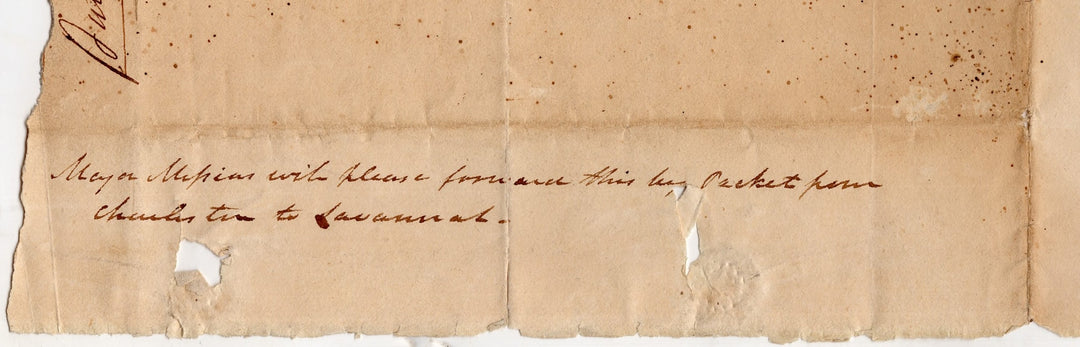 Major Messias will please forward this by Packet from
Charleston to Savannah.